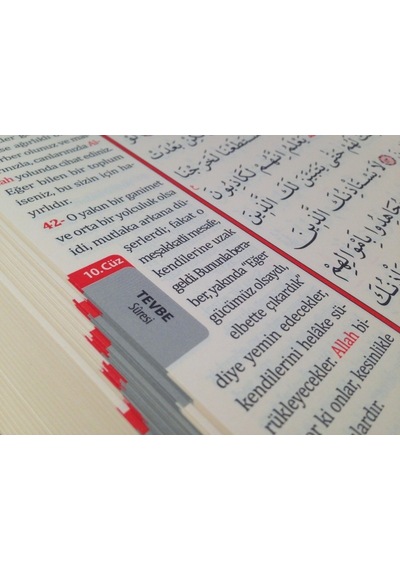 rber olunuz ve ma
nızla, canlarınızla Al-
lah yolunda cihat ediniz.
Eğer bilen bir toplum
iseniz, bu sizin için ha-
yırlıdır.
42- O yakın bir ganimet
ve orta bir yolculuk olsa
idi, mutlaka arkana dü-
şerlerdi; fakat o
meşakkatli mesafe,
kendilerine uzak
geldi. Bununla bera-
ber, yakında "Eğer
gücümüz olsaydı,
elbette çıkardık"
diye yemin edecekler,
kendilerini helâke sü-
rükleyecekler. Allah bi-
r ki onlar, kesinlikle
lardır.
10. Cüz
TEVBE
Sûresi
اسْتَطَعْنَا لَخَرَجْنَا
يَعْلَمُ اِنَّهُمْ لَكَاذِبُونَ
لَهُمْ حَتّٰى يَتَبَيَّنَ لَكَ الَّذٖينَ
لَا يَسْتَأْذِنُكَ الَّذٖينَ
يُجَاهِدُوا بِاَمْوَالِهِمْ